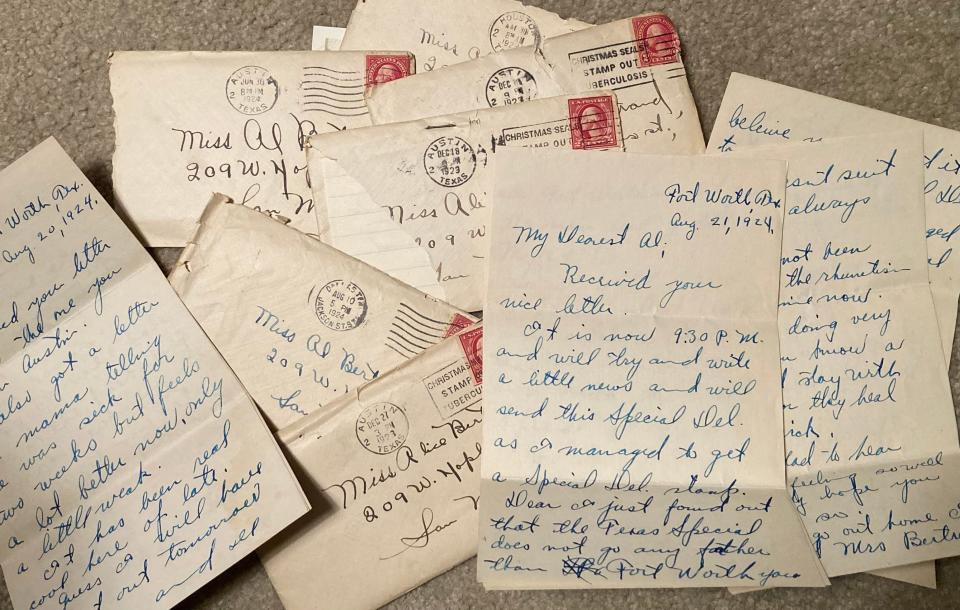 AUSTIN
2
JUN 16
8 PM
1924
TEXAS
Miss Al Be
209 W.
San M
HOUSTON
Miss A
2
AUSTIN
2
DEC
9 PM
1923
CHRISTMAS SEALS
STAMP OUT
TUBERCULOSIS
AUSTIN
2
DEC 18
PM
1923
TEXAS
CHRISTMAS SEA
STAMP OUT
Miss Alic
209 W
San
DALLAS, TEX.
AUG 10
5 PM
1924
JACKSON ST. STA.
Miss Al Ber
209 W.
San
AUSTIN
2
DEC 27
PM
1923
TEXAS
CHRISTMAS
STAMP O
TUBERCUL
Miss Alice Ber
209 W. Hopk
San M
Worth Tex.
Aug. 20, 1924.
ed your letter
me you
Austin
also got a letter
mama telling
was sick for
two weeks but feels
a lot better now, only
little weak.
It has been real
cool here of late.
Guess I will have
out tomorrow
and
Fort Worth, Tex.
Aug. 21, 1924.
My Dearest Al;
Received your
nice letter.
It is now 9:30 P.M.
and will try and write
a little news and will
send this Special Del.
as I managed to get
a Special Del. stamp.
Dear I just found out
that the Texas Special
does not go any father
than Fort Worth you
believe
sn't sent
always
not been
the rhumetism
now.
doing very
know a
stay with
they heal
ad to hear
feeling so well
hope you
go out home
Mrs Bert
it